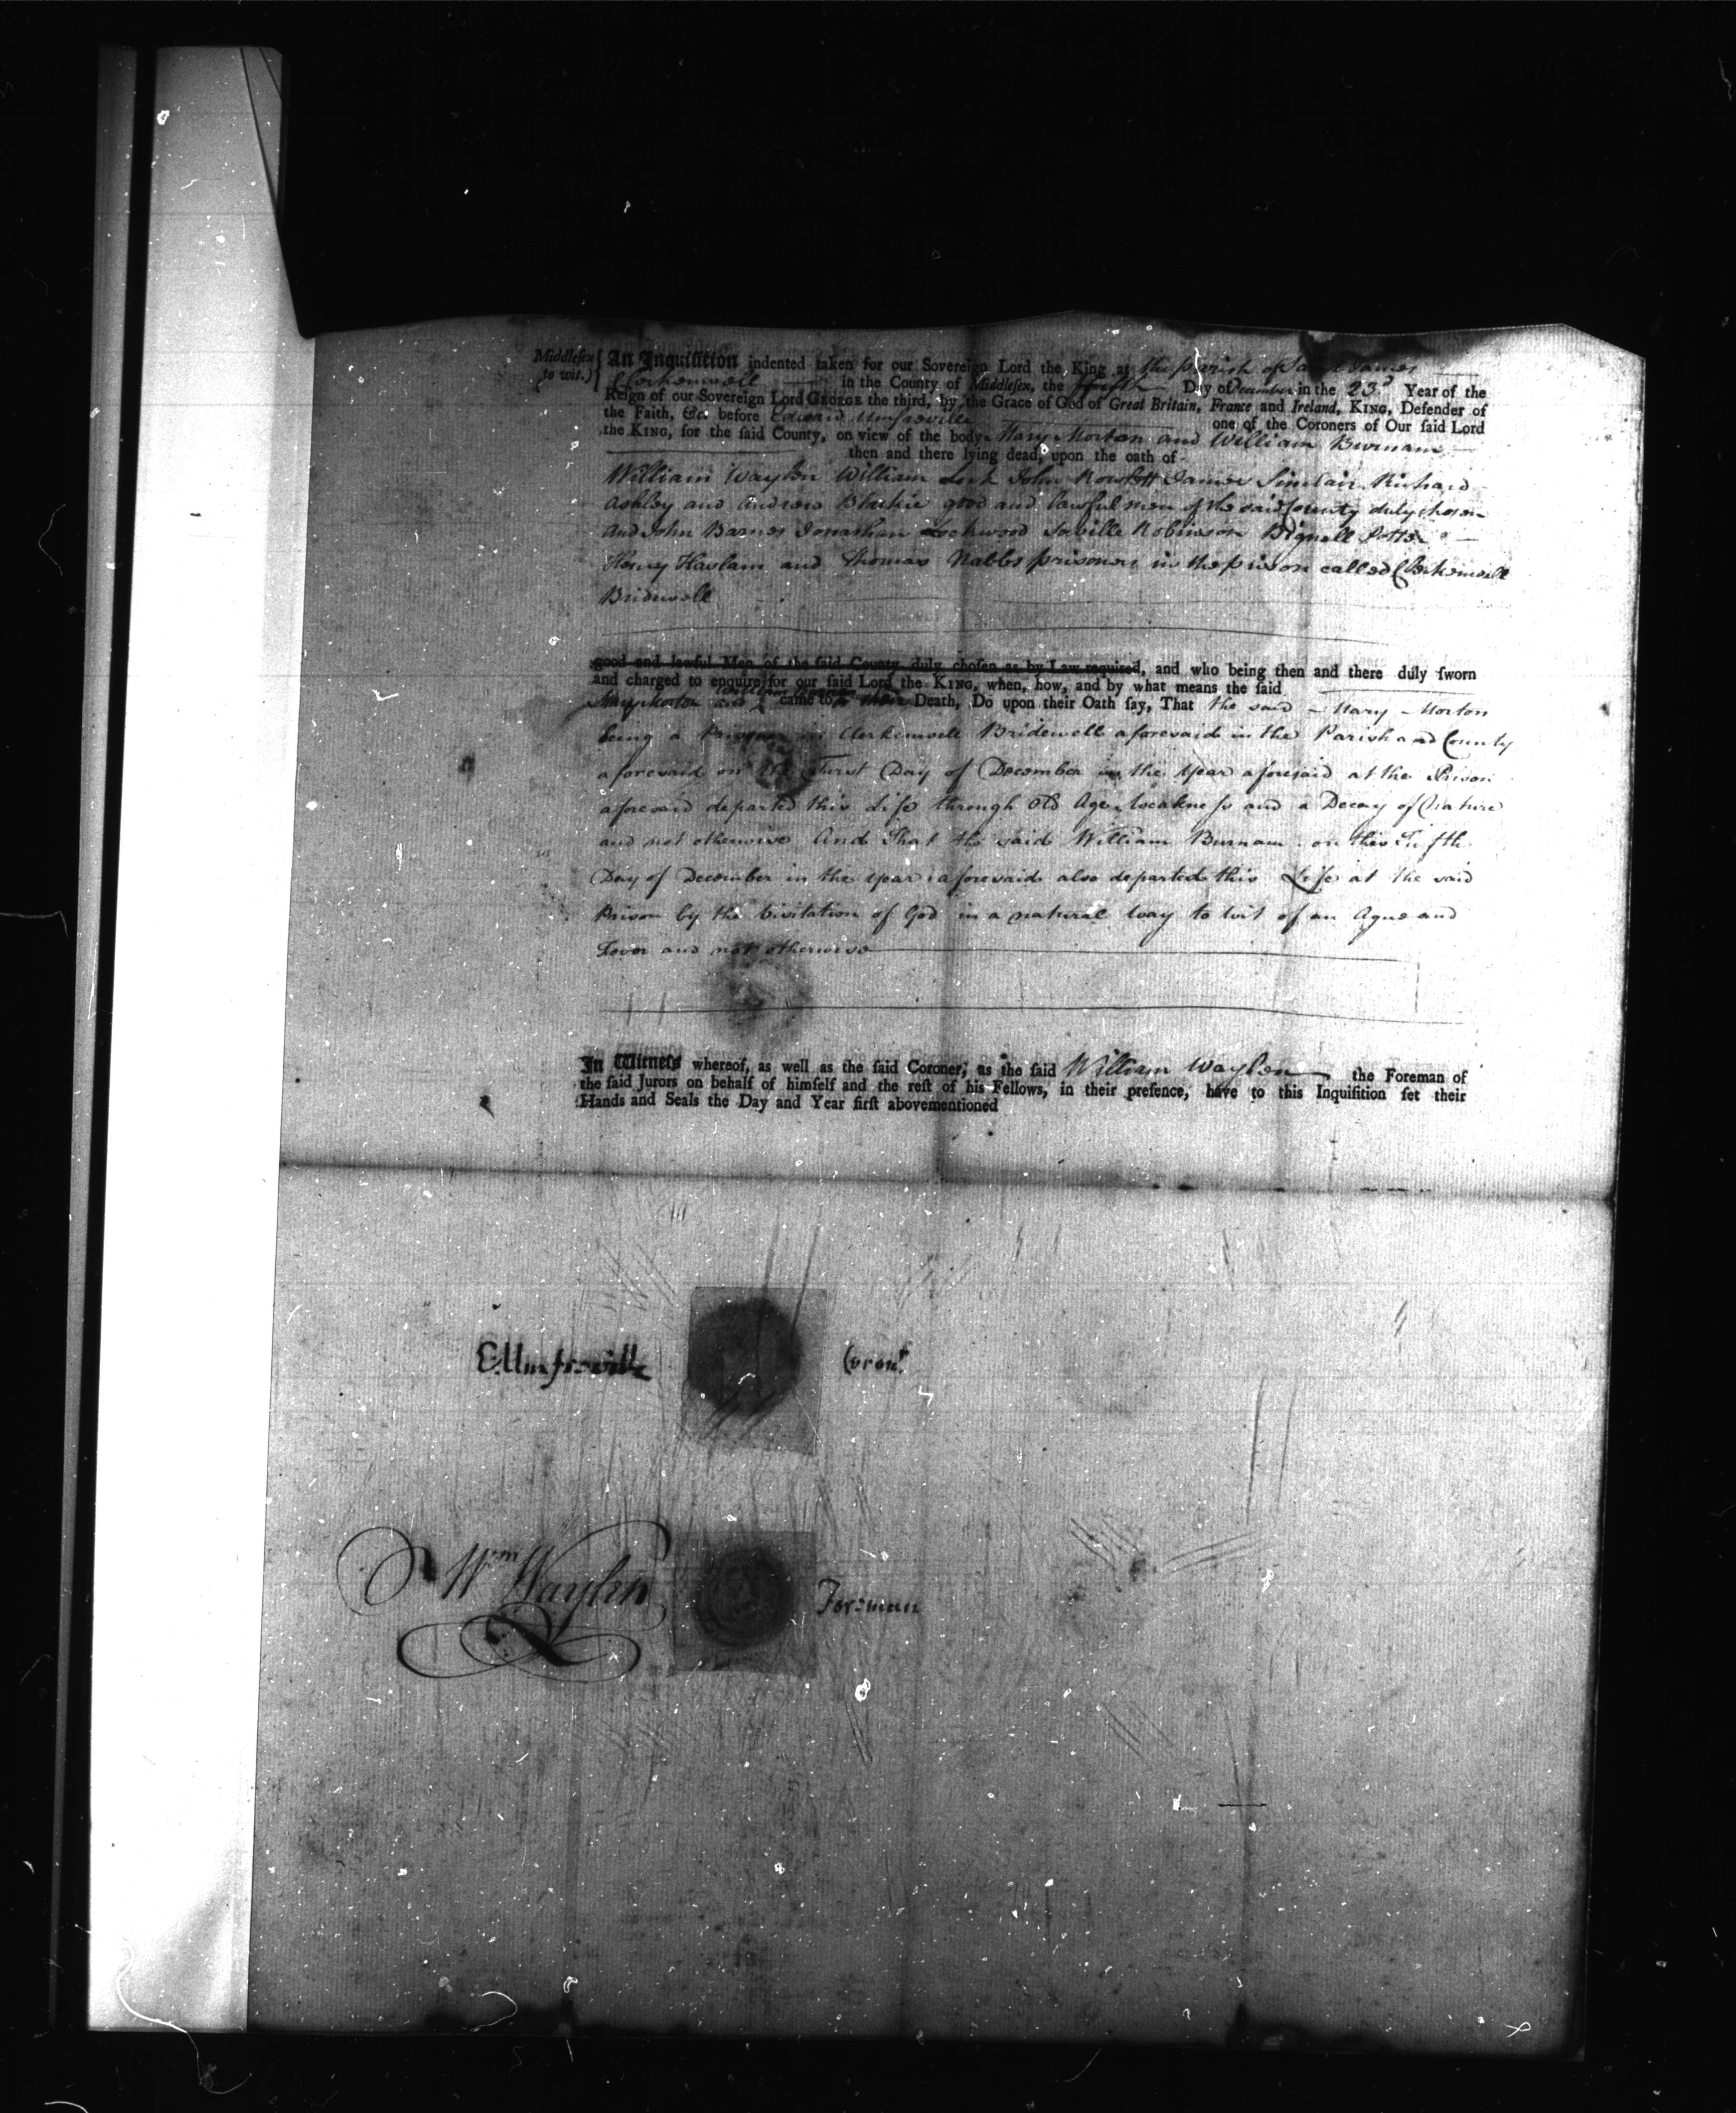 Middlesex to wit.) { An Inquisition indented taken for our Sovereign Lord the King at the parish of Saint James
Clerkenwell in the County of Middlesex, the fifth Day of December in the 23d Year of the
Reign of our Sovereign Lord GEORGE the third, by the Grace of God of Great Britain, France and Ireland, KING, Defender of
the Faith, &c. before Edward Umfreville one of the Coroners of Our said Lord
the KING, for the said County, on view of the body Mary Morton and William Burnam
then and there lying dead, upon the oath of
William Waylen William Lock John Rowlett James Sinclair Richard
Ashley and Andrew Blakie good and lawful men of the said County duly chosen
and John Barnes Jonathan Lockwood Saville Robinson Bignell Potter
Henry Haslam and Thomas Nabbs prisoners in the prison called Clerkenwell
Bridewell
good and lawful Men of the said County duly chosen as by Law required, and who being then and there duly sworn
and charged to enquire for our said Lord the KING, when, how, and by what means the said
Mary Morton and William Burnam came to their Death, Do upon their Oath say, That the said Mary Morton
being a Prisoner in Clerkenwell Bridewell aforesaid in the Parish and County
aforesaid on the First Day of December in the Year aforesaid at the Prison
aforesaid departed this Life through Old Age Weakness and a Decay of Nature
and not otherwise And That the said William Burnam on this Fifth
Day of December in the year aforesaid also departed this Life at the said
Prison by the Visitation of God in a natural way to wit of an Ague and
Fever and not otherwise
In Witness whereof, as well as the said Coroner, as the said William Waylen the Foreman of
the said Jurors on behalf of himself and the rest of his Fellows, in their presence, have to this Inquisition set their
Hands and Seals the Day and Year first abovementioned
E Umfreville Coronr.
Wm Waylen Foreman